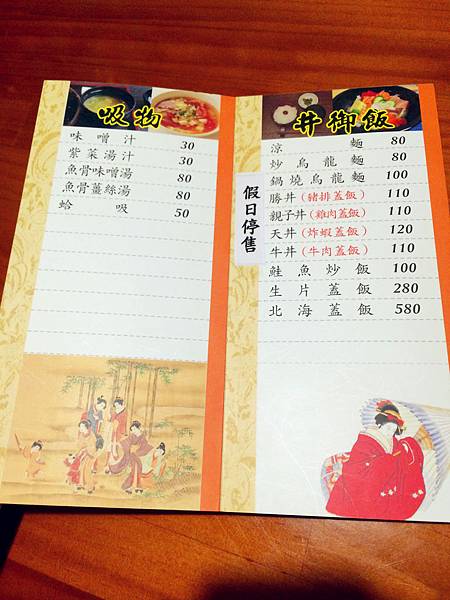 吸物
味噌汁 30
紫菜湯汁 30
魚骨味噌湯 80
魚骨薑絲湯 80
蛤吸 50
丼御飯
假日停售
涼麵 80
炒烏龍麵 80
鍋燒烏龍麵 100
勝丼(豬排蓋飯) 110
親子丼(雞肉蓋飯) 110
天丼(炸蝦蓋飯) 120
牛丼(牛肉蓋飯) 110
鮭魚炒飯 100
生片蓋飯 280
北海蓋飯 580